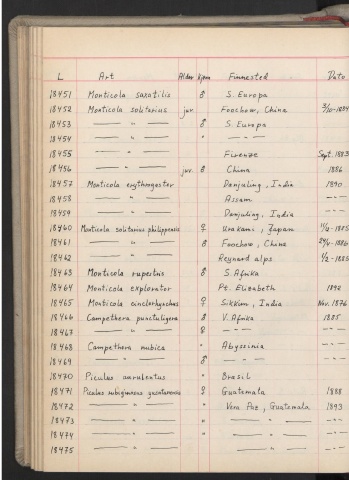 L Art Alder Kjønn Finnested Dato
18451 Monticola saxatilis ♂ S. Europa
18452 Monticola solitarius juv. Foochow, China 3/10-1884
18453 — " — ♂ S. Europa
18454 — " — " — " —
18455 — " — Firenze Sept. 1883
18456 — " — juv. ♂ China 1886
18457 Monticola erythrogaster Darjuling, India 1890
18458 — " — Assam — " —
18459 — " — Darjuling, India — " —
18460 Monticola solitarius philippensis ♀ Urakami, Japan
18461 — " — ♂ Foochow, China 24/4-1886
18462 — " — Reynard alps 1/2-1885
18463 Monticola rupestris ♂ S. Afrika
18464 Monticola explorator Pt. Elizabeth 1892
18465 Monticola cinclorhynchus ♀ Sikkim, India Nov. 1876
18466 Campethera punctuligera ♂ V. Afrika 1885
18467 — " — ♀ — " —
18468 Campethera nubica " Abyssinia — " —
18469 — " — ♂ — " —
18470 Piculus aurulentus " Brasil
18471 Piculus rubiginosus yucatanensis ♀ Guatemala 1888
18472 — " — " Vera Paz, Guatemala 1893
18473 — " — " — " — — " —
18474 — " — " — " — — " —
18475 — " — — " — — " —